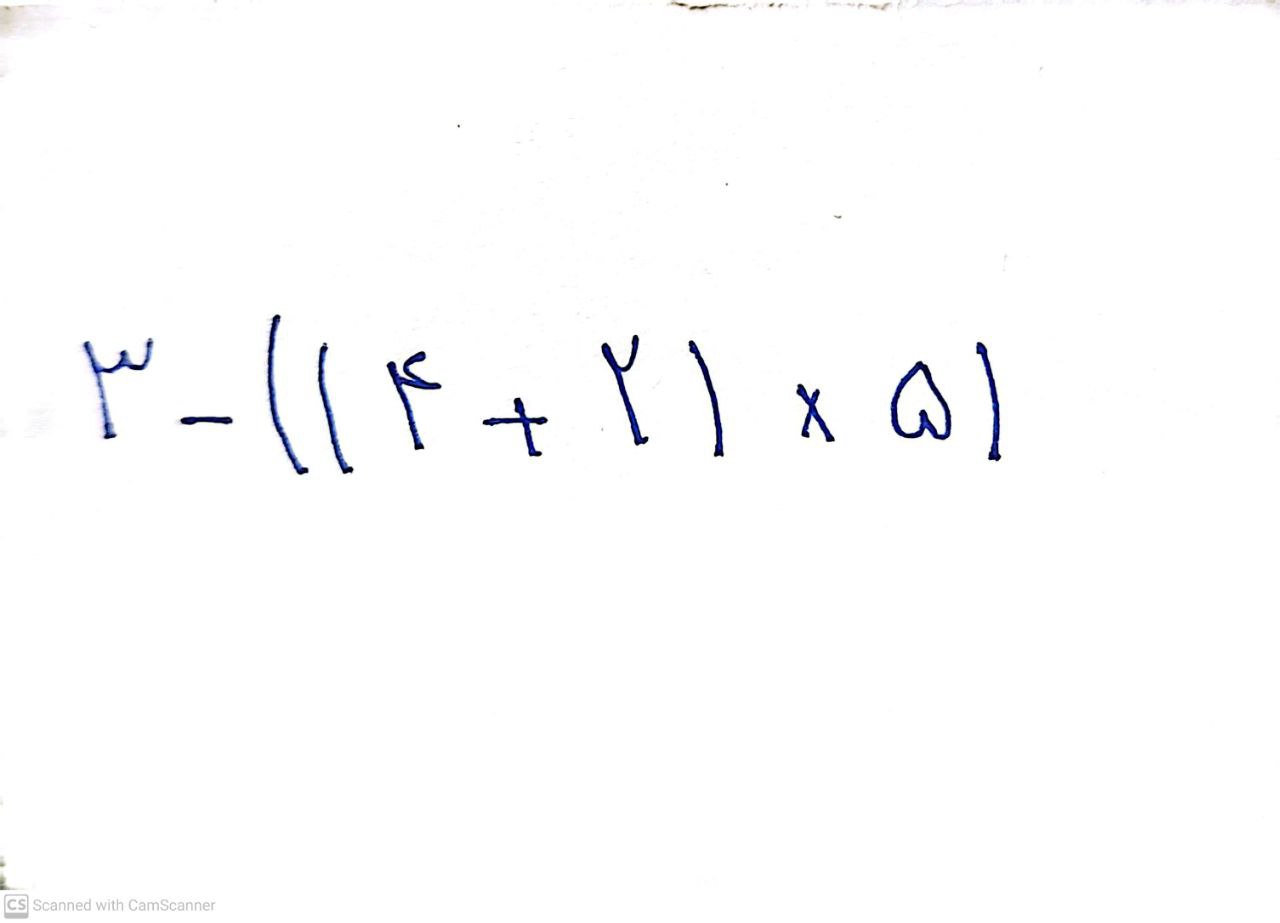 ۳ - ((۴ + ۲) × ۵)
CS Scanned with CamScanner